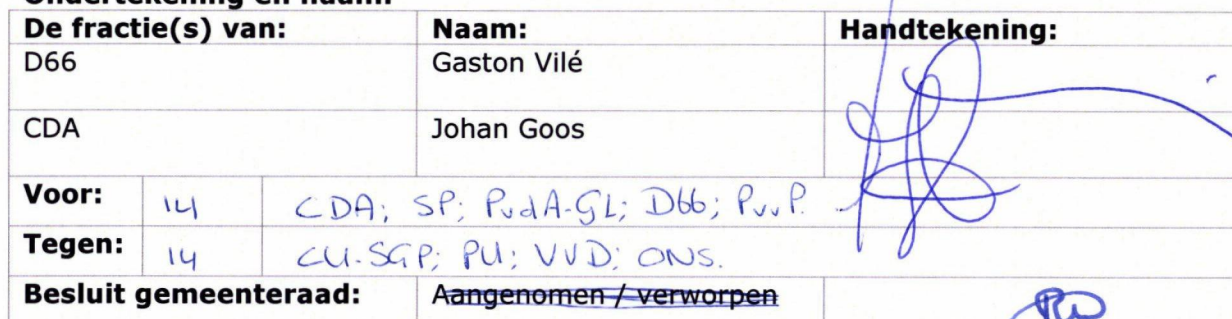 De fractie(s) van: Naam: Handtekening:
D66 Gaston Vilé
CDA Johan Goos
Voor: 14 CDA; SP; PvdA-GL; D66; PvvP.
Tegen: 14 CU-SGP; PU; VVD; ONS.
Besluit gemeenteraad: Aangenomen / verworpen